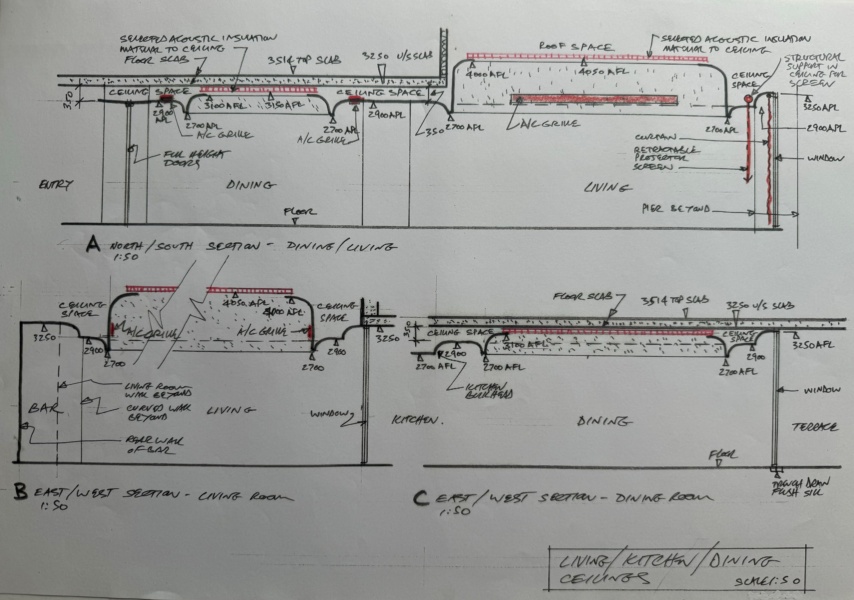 SELECTED ACOUSTIC INSULATION
MATERIAL TO CEILING
FLOOR SLAB
3514 TOP SLAB
3250 U/S SLAB
ROOF SPACE
SELECTED ACOUSTIC INSULATION
MATERIAL TO CEILING
STRUCTURAL
SUPPORT IN
CEILING FOR
SCREEN
CEILING SPACE
CEILING SPACE
4000 AFL
4050 AFL
CEILING
SPACE
2900
AFL
3100 AFL
3150 AFL
2900
AFL
3250 AFL
2700 AFL
A/C GRILLE
2700 AFL
A/C GRILLE
350
2700
AFL
A/C GRILLE
2700
AFL
2900 AFL
FULL HEIGHT
DOORS
CURTAIN
RETRACTABLE
PROJECTOR
SCREEN
WINDOW
ENTRY
DINING
LIVING
PIER BEYOND
FLOOR
A NORTH/SOUTH SECTION - DINING/LIVING
1:50
CEILING
SPACE
4050 AFL
4000 AFL
CEILING
SPACE
3250
2900
2700
A/C GRILLE
A/C GRILLE
2700
2900
3250
BAR
LIVING ROOM
WALL BEYOND
CURVED WALL
BEYOND
REAR WALL
OF BAR
LIVING
WINDOW
KITCHEN.
B EAST/WEST SECTION - LIVING ROOM
1:50
FLOOR SLAB
3514 TOP SLAB
3250 U/S SLAB
350
CEILING SPACE
CEILING
SPACE
2700
AFL
2900
2700 AFL
3100 AFL
2900
2700 AFL
3250
AFL
KITCHEN
BULKHEAD
WINDOW
DINING
TERRACE
FLOOR
TRENCH DRAIN
FLUSH SILL
C EAST/WEST SECTION - DINING ROOM
1:50
LIVING/KITCHEN/DINING
CEILINGS
SCALE 1:50